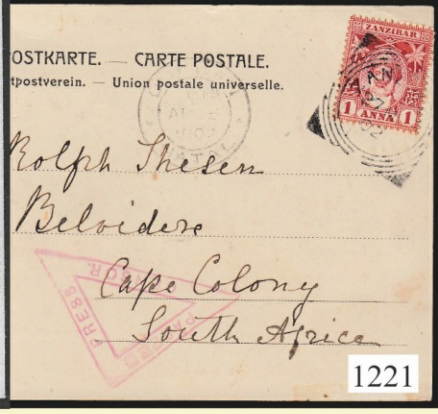 OSTKARTE. — CARTE POSTALE.
tpostverein. — Union postale universelle.
ZANZIBAR
1 ANNA 1
Rolph Thesen
Belvidere
Cape Colony
South Africa
PRESS
1221